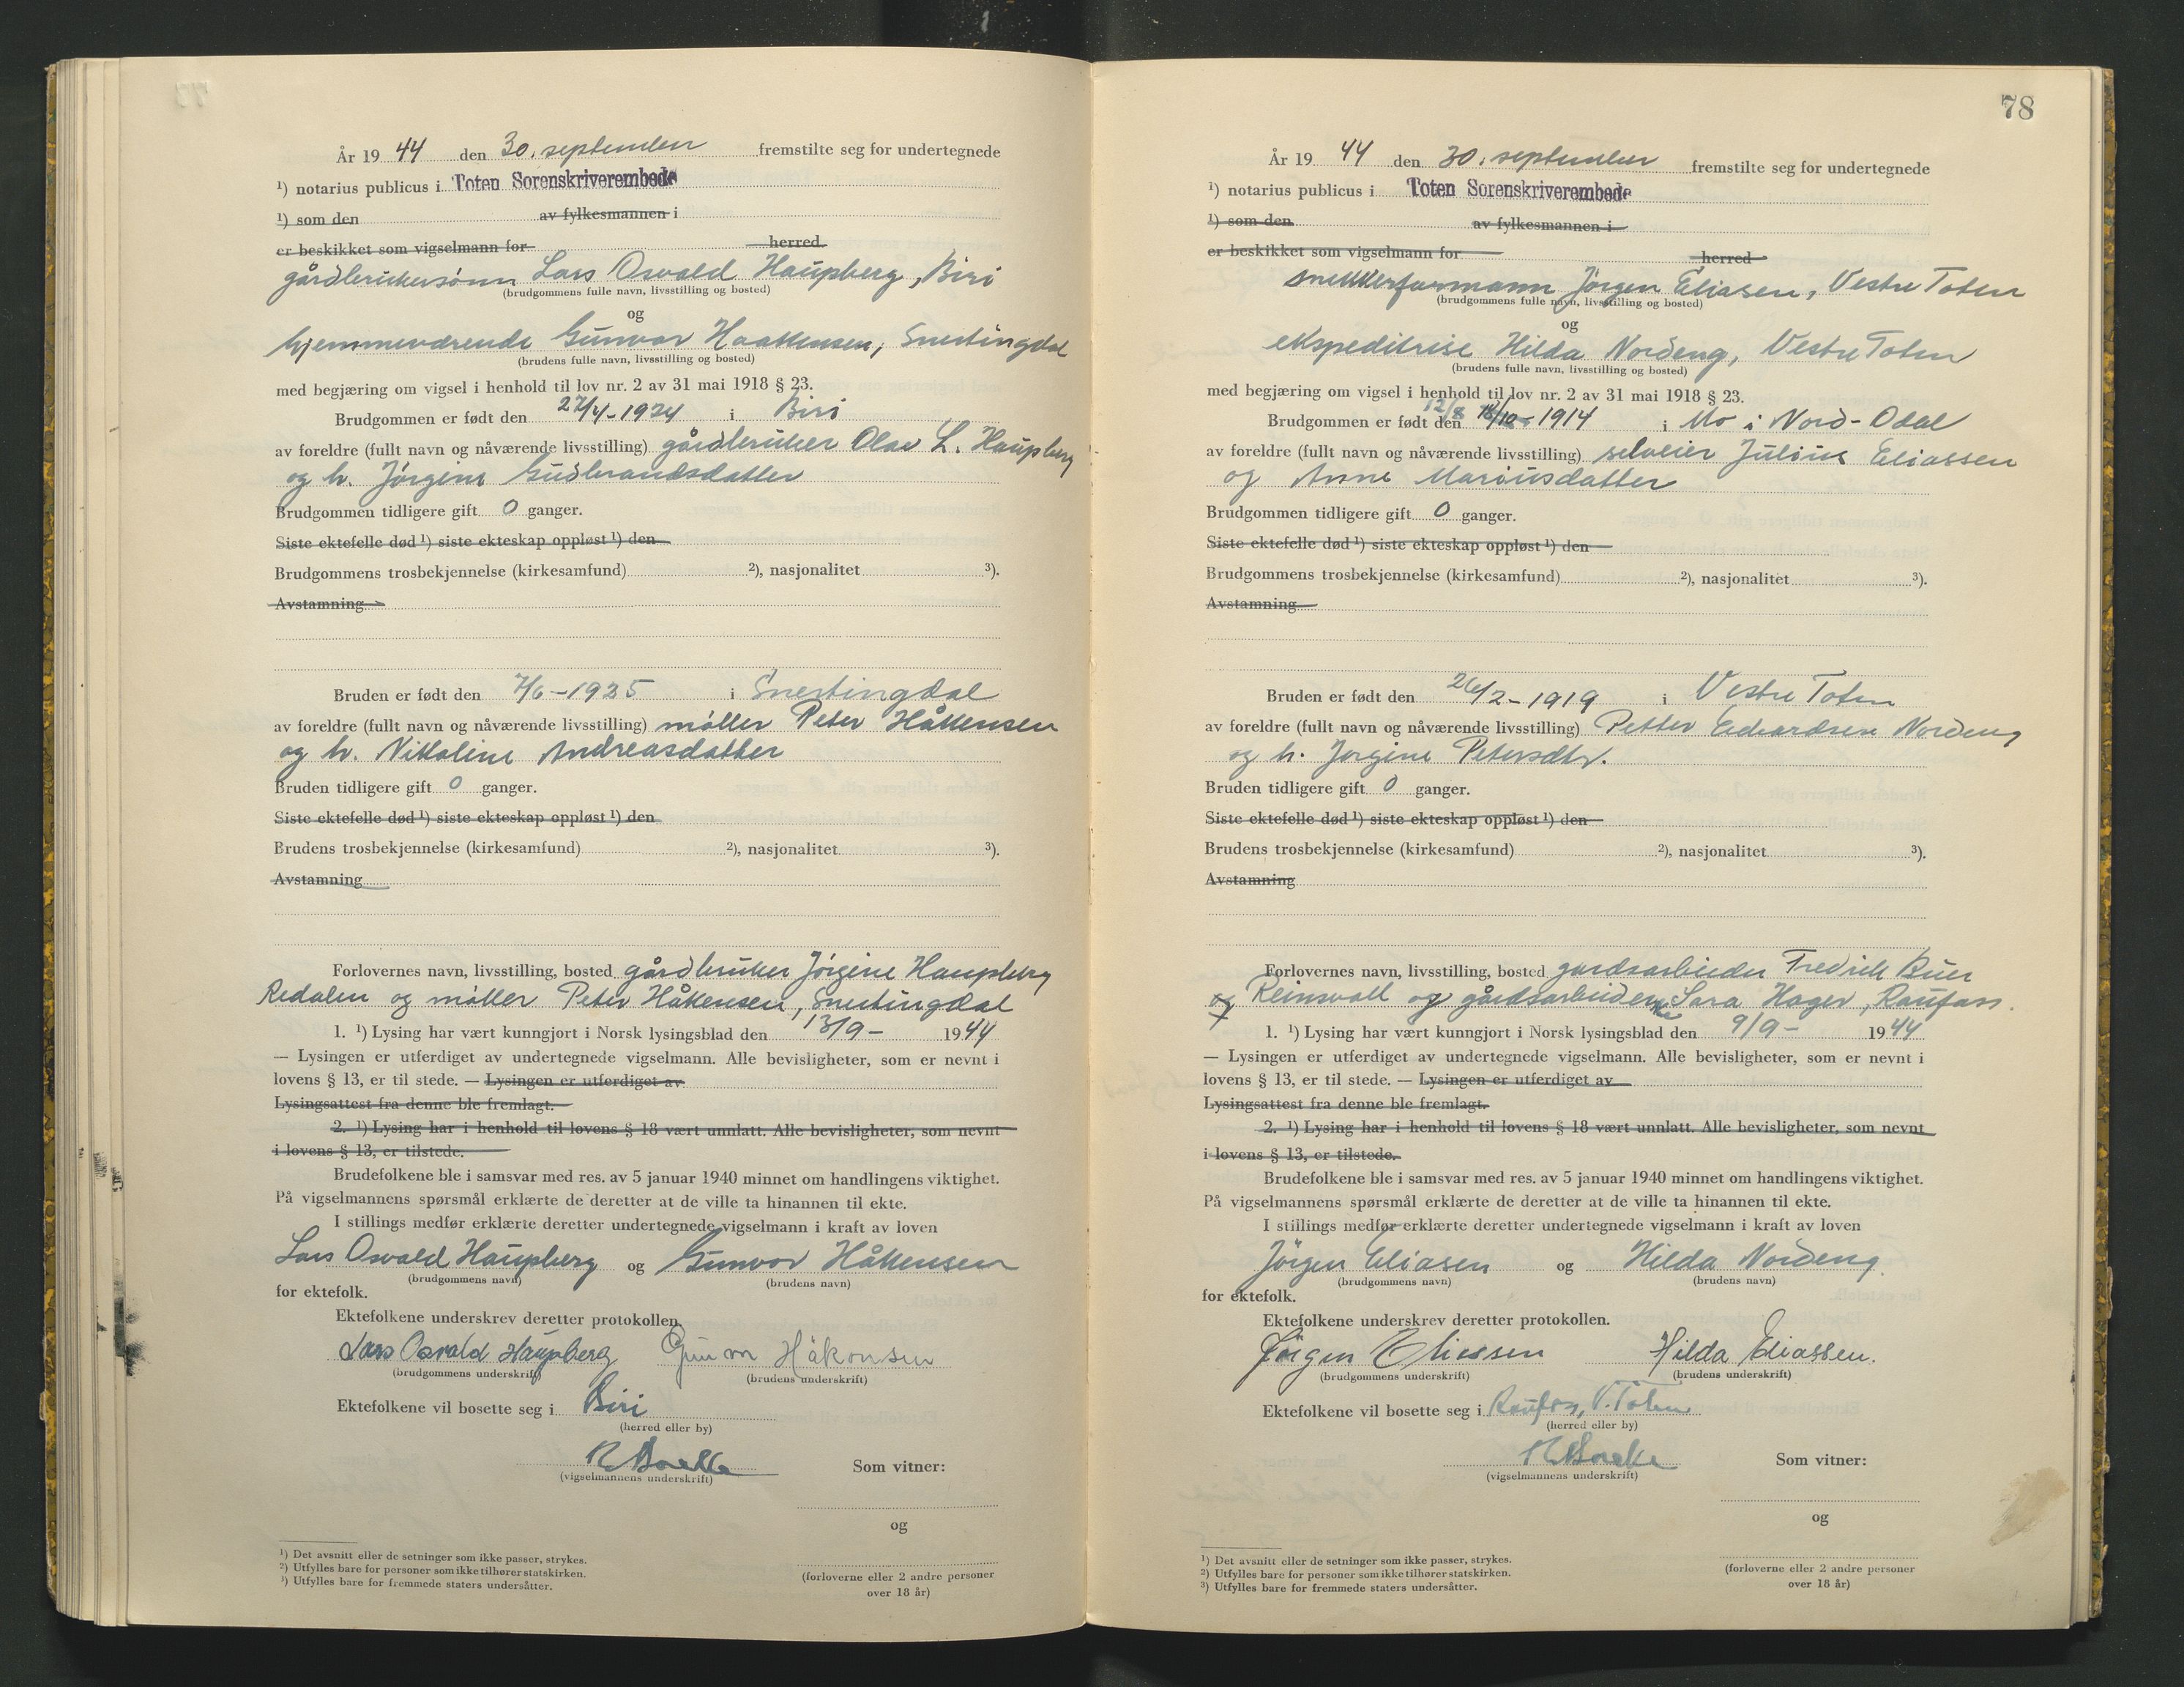 År 19 44 den 30. september fremstilte seg for undertegnede
¹) notarius publicus i Toten Sorenskriverembede
¹) som den av fylkesmannen i
er beskikket som vigselmann for herred.
gårdbrukersønn Lars Osvald Haupberg, Biri
(brudgommens fulle navn, livsstilling og bosted)
og
hjemmeværende Gunvor Haakensen, Snertingdal
(brudens fulle navn, livsstilling og bosted)
med begjæring om vigsel i henhold til lov nr. 2 av 31 mai 1918 § 23.
Brudgommen er født den 27/4-1924 i Biri
av foreldre (fullt navn og nåværende livsstilling) gårdbruker Olav L. Haupberg
og h. Jørgine Gudbrandsdatter
Brudgommen tidligere gift 0 ganger.
Siste ektefelle død ¹) siste ekteskap oppløst ¹) den
Brudgommens trosbekjennelse (kirkesamfund) ²), nasjonalitet ³).
Avstamning
Bruden er født den 7/6-1925 i Snertingdal
av foreldre (fullt navn og nåværende livsstilling) møller Peter Håkensen
og h. Nikoline Andreasdatter
Bruden tidligere gift 0 ganger.
Siste ektefelle død ¹) siste ekteskap oppløst ¹) den
Brudens trosbekjennelse (kirkesamfund) ²), nasjonalitet ³).
Avstamning
Forlovernes navn, livsstilling, bosted gårdbruker Jørgine Haupberg
Redalen og møller Peter Håkensen, Snertingdal
1. ¹) Lysing har vært kunngjort i Norsk lysingsblad den 13/9- 1944
— Lysingen er utferdiget av undertegnede vigselmann. Alle bevisligheter, som er nevnt i
lovens § 13, er til stede. — Lysingen er utferdiget av
Lysingsattest fra denne ble fremlagt.
2. ¹) Lysing har i henhold til lovens § 18 vært unnlatt. Alle bevisligheter, som nevnt
i lovens § 13, er tilstede.
Brudefolkene ble i samsvar med res. av 5 januar 1940 minnet om handlingens viktighet.
På vigselmannens spørsmål erklærte de deretter at de ville ta hinannen til ekte.
I stillings medfør erklærte deretter undertegnede vigselmann i kraft av loven
Lars Osvald Haupberg og Gunvor Håkensen
(brudgommens navn) (brudens navn)
for ektefolk.
Ektefolkene underskrev deretter protokollen.
Lars Osvald Haupberg Gunvor Håkonsen
(brudgommens underskrift) (brudens underskrift)
Ektefolkene vil bosette seg i Biri
(herred eller by)
(vigselmannens underskrift) Som vitner:
og
¹) Det avsnitt eller de setninger som ikke passer, strykes.
²) Utfylles bare for personer som ikke tilhører statskirken.
³) Utfylles bare for fremmede staters undersåtter.
(forloverne eller 2 andre personer
over 18 år)
78
År 19 44 den 30. september fremstilte seg for undertegnede
¹) notarius publicus i Toten Sorenskriverembede
¹) som den av fylkesmannen i
er beskikket som vigselmann for herred
snekkerformann Jørgen Eliasen, Vestre Toten
(brudgommens fulle navn, livsstilling og bosted)
og
ekspeditrise Hilda Nordeng, Vestre Toten
(brudens fulle navn, livsstilling og bosted)
med begjæring om vigsel i henhold til lov nr. 2 av 31 mai 1918 § 23.
Brudgommen er født den 12/8 18/10-1914 i Mo i Nord-Odal
av foreldre (fullt navn og nåværende livsstilling) selveier Julius Eliassen
og Anne Mariusdatter
Brudgommen tidligere gift 0 ganger.
Siste ektefelle død ¹) siste ekteskap oppløst ¹) den
Brudgommens trosbekjennelse (kirkesamfund) ²), nasjonalitet ³).
Avstamning
Bruden er født den 26/2-1919 i Vestre Toten
av foreldre (fullt navn og nåværende livsstilling) Petter Edvardsen Nordeng
og h. Jørgine Petersdtr.
Bruden tidligere gift 0 ganger.
Siste ektefelle død ¹) siste ekteskap oppløst ¹) den
Brudens trosbekjennelse (kirkesamfund) ²), nasjonalitet ³).
Avstamning
Forlovernes navn, livsstilling, bosted gardsarbieder Fredrik Buer
og Reinsvoll og gårdsarbeiderske Sara Hager, Raufoss.
1. ¹) Lysing har vært kunngjort i Norsk lysingsblad den 9/9- 1944
— Lysingen er utferdiget av undertegnede vigselmann. Alle bevisligheter, som er nevnt i
lovens § 13, er til stede. — Lysingen er utferdiget av
Lysingsattest fra denne ble fremlagt.
2. ¹) Lysing har i henhold til lovens § 18 vært unnlatt. Alle bevisligheter, som nevnt
i lovens § 13, er tilstede.
Brudefolkene ble i samsvar med res. av 5 januar 1940 minnet om handlingens viktighet.
På vigselmannens spørsmål erklærte de deretter at de ville ta hinannen til ekte.
I stillings medfør erklærte deretter undertegnede vigselmann i kraft av loven
Jørgen Eliasen og Hilda Nordeng.
(brudgommens navn) (brudens navn)
for ektefolk.
Ektefolkene underskrev deretter protokollen.
Jørgen Eliassen Hilda Eliassen.
(brudgommens underskrift) (brudens underskrift)
Ektefolkene vil bosette seg i Raufoss, V. Toten
(herred eller by)
(vigselmannens underskrift) Som vitner:
og
¹) Det avsnitt eller de setninger som ikke passer, strykes.
²) Utfylles bare for personer som ikke tilhører statskirken.
³) Utfylles bare for fremmede staters undersåtter.
(forloverne eller 2 andre personer
over 18 år)